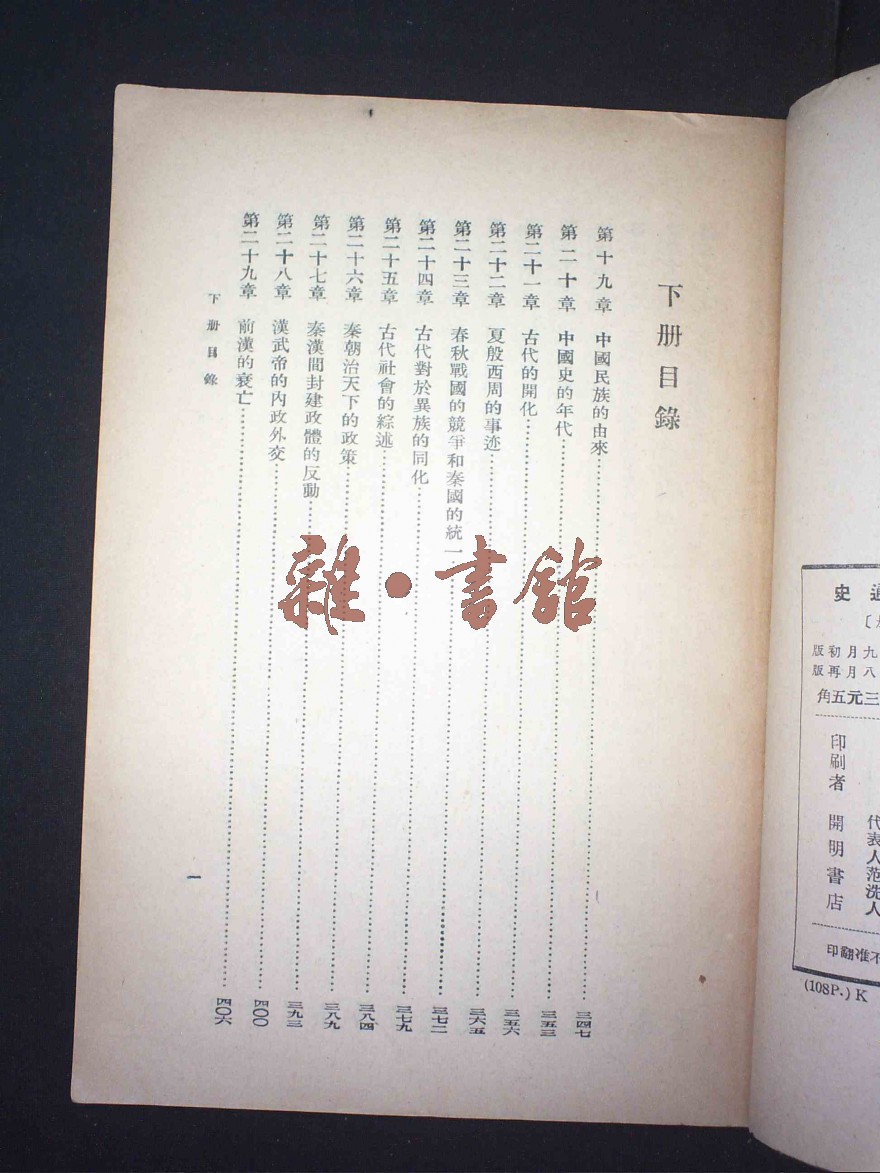 下册目錄
第十九章 中國民族的由來……三四七
第二十章 中國史的年代……三五三
第二十一章 古代的開化……三五六
第二十二章 夏殷西周的事迹……三六五
第二十三章 春秋戰國的競爭和秦國的統一……三七二
第二十四章 古代對於異族的同化……三七九
第二十五章 古代社會的綜述……三八四
第二十六章 秦朝治天下的政策……三八九
第二十七章 秦漢間封建政體的反動……三九三
第二十八章 漢武帝的內政外交……四〇〇
第二十九章 前漢的衰亡……四〇六
下册目錄
一
雜·書館
史
版初月九
版再月八
角五元三
印刷者
開明書店
代表人范洗人
印翻准不
(108P.) K